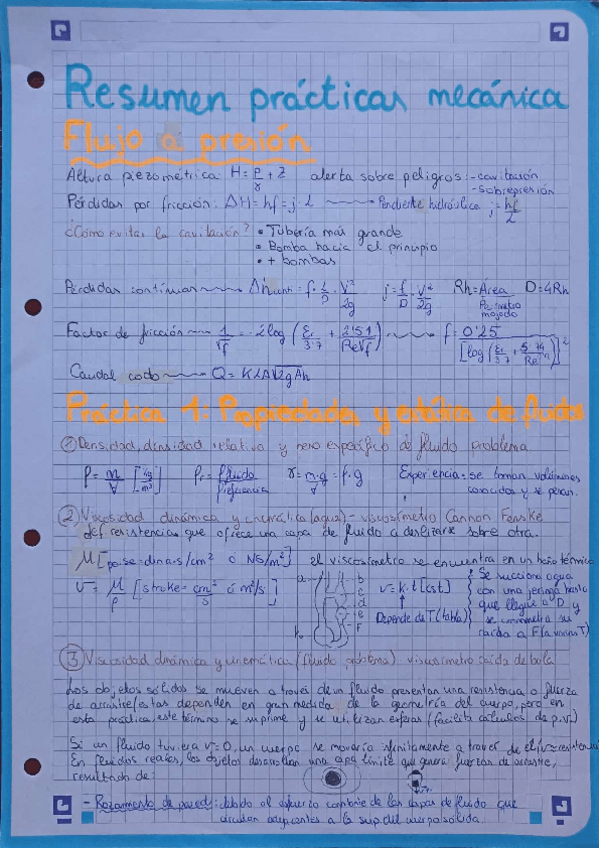 Resumen prácticas mecánica
Flujo a presión
Altura piezométrica: H = P/γ + Z alerta sobre peligros: - cavitación
- sobrepresión
Pérdidas por fricción: ΔH = hf = j · L Pendiente hidráulica j = hf/L
¿Cómo evitar la cavitación? • Tubería más grande
• Bomba hacia el principio
• + bombas
Pérdidas continuas Δh conti = f · L/D · V²/2g j = f/D · V²/2g Rh = Área/Perímetro mojado D = 4Rh
Factor de fricción 1/√f = -2log (Er/3.7 + 2'51/Re√f) f = 0'25/[log(Er/3.7 + 5.74/Re)]²
Caudal codo Q = K A √2gΔh
Práctica 1: Propiedades y estática de fluidos
① Densidad, densidad relativa y peso específico de fluido problema
ρ = m/V [kg/m³] ρr = ρfluido/ρreferencia γ = m·g/V = ρ·g Experiencia: se toman volúmenes
conocidos y se pesan.
② Viscosidad dinámica y cinemática (agua) - viscosímetro Cannon Fenske
def resistencias que ofrece una capa de fluido a deslizarse sobre otra.
μ [poise = dina·s/cm² ó NS/m²] El viscosímetro se encuentra en un baño térmico
ν = μ/ρ [stroke = cm²/s ó m²/s] a b c d e F ν = k·t [cst] Se succiona agua
con una jeringa hasta
Depende de T (tabla) que llegue a D y
se cronometra su
caída a F (a varias T)
③ Viscosidad dinámica y cinemática (fluido problema) viscosímetro caída de bola
Los objetos sólidos se mueven a través de un fluido presentan una resistencia o fuerza
de arrastre (estas dependen en gran medida de la geometría del cuerpo, pero en
esta práctica, este término se suprime y se utilizan esferas (facilita cálculos de
Si un fluido tuviera ν = 0, un cuerpo se movería infinitamente a través de él (
resistencia
En fluidos reales, los objetos desarrollan una capa límite que genera fuerzas de arrastre,
resultado de:
- Rozamiento de pared: debido al esfuerzo cortante de las capas de fluido que
circulan adyacentes a la sup del cuerpo sólido.